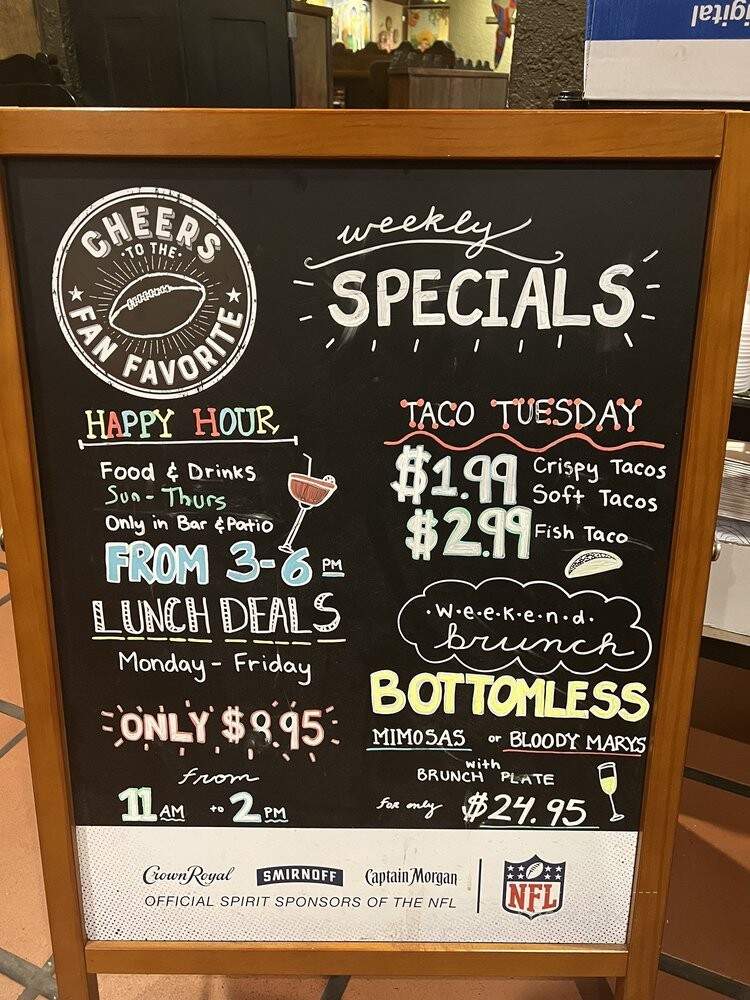 Digital
CHEERS
·TO THE·
FAN FAVORITE
weekly
SPECIALS
HAPPY HOUR
Food & Drinks
Sun - Thurs
Only in Bar & Patio
FROM 3-6 PM
LUNCH DEALS
Monday - Friday
ONLY $8.95
from
11 AM to 2 PM
TACO TUESDAY
$1.99 Crispy Tacos
Soft Tacos
$2.99 Fish Taco
·W·e·e·k·e·n·d·
brunch
BOTTOMLESS
MIMOSAS or BLOODY MARYS
with
BRUNCH PLATE
for only $24.95
Crown Royal SMIRNOFF Captain Morgan
OFFICIAL SPIRIT SPONSORS OF THE NFL
NFL